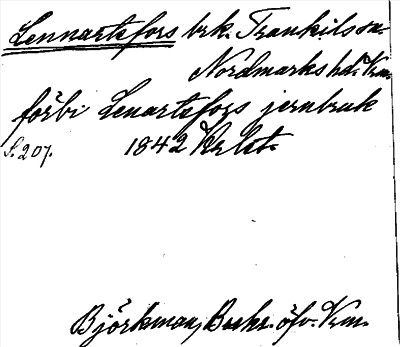 Lennartsfors brk. Trankils sn.
Nordmarks hd. Vrm.
förbi Lenartsfors jernbruk
S. 207. 1842 Vrlst.
Björkman, Beskr. öfv. Vrm.